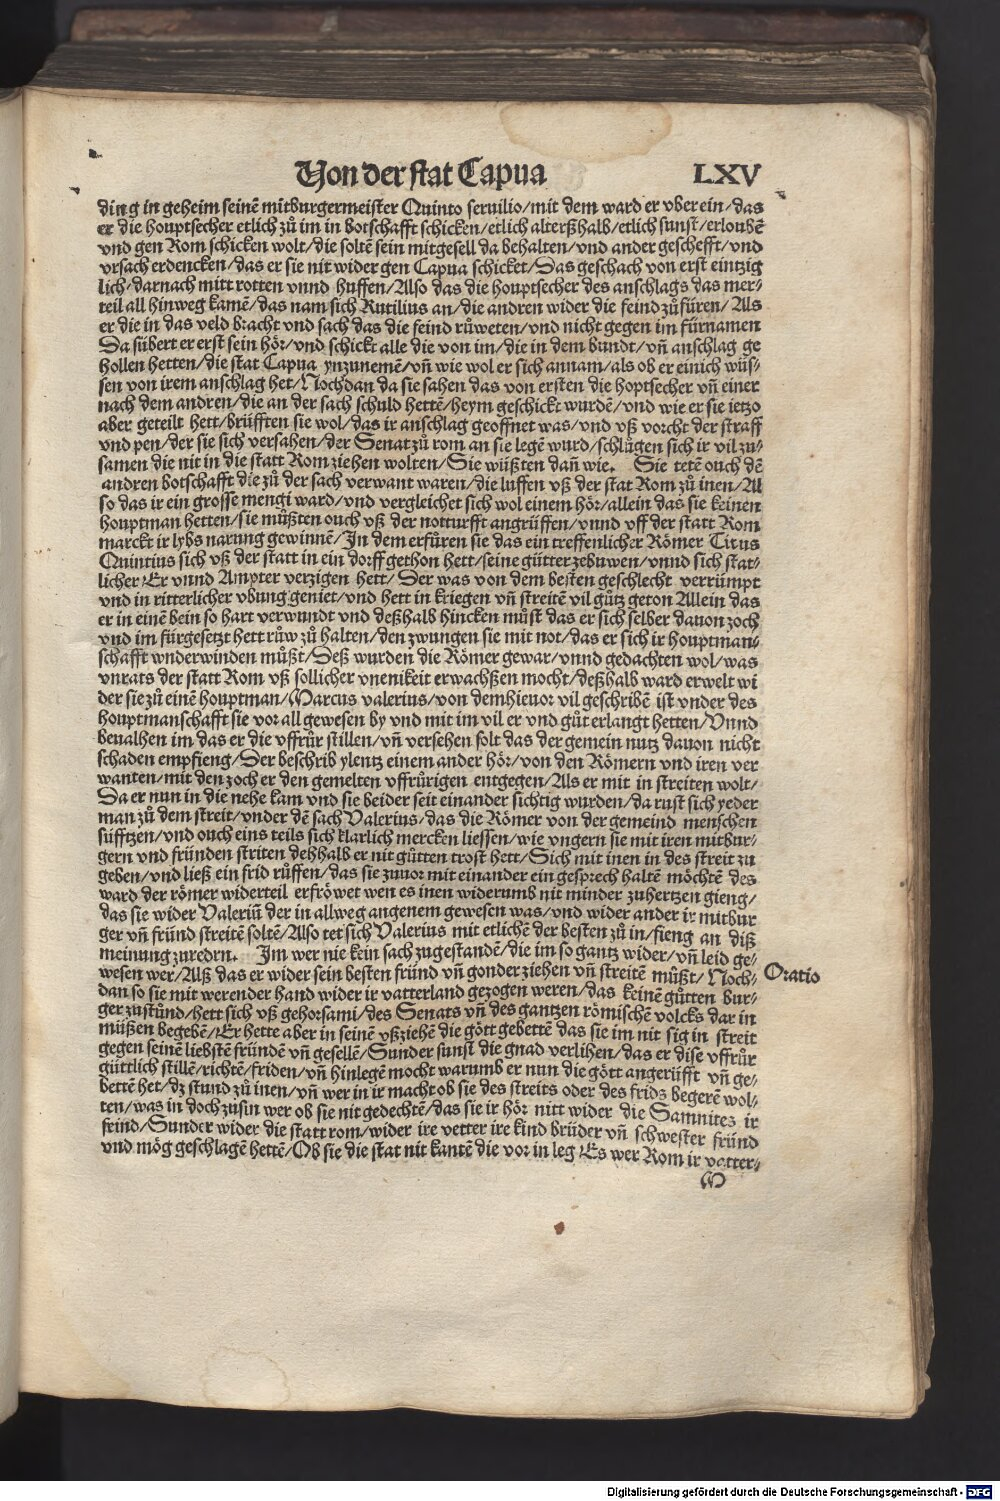 Von der stat Capua LXV
ding in geheim seinē mitburgermeister Quinto seruilio/mit dem ward er vber ein/das
er die houptsecher etlich zů im in botschafft schicken/etlich alterßhalb/etlich sunst/erloubē
vnd gen Rom schicken wolt/die soltē sein mitgesell da behalten/vnd ander geschefft/vnd
vrsach erdencken/das er sie nit wider gen Capua schicket/Das geschach von erst eintzig
lich/darnach mitt rotten vnnd huffen/Also das die houptsecher des anschlags das mer⸗
teil all hinweg kamē/das nam sich Rutilius an/die andren wider die feind zůfüren/Als
er die in das veld bracht vnd sach das die feind růweten/vnd nicht gegen im fürnamen
Da sübert er erst sein hör/vnd schickt alle die von im/die in dem bundt/vñ anschlag ge
hollen hetten/die stat Capua ynzunemē/vñ wie wol er sich annam/als ob er einich wüs⸗
sen von irem anschlag het/Nochdan da sie sahen das von ersten die hoptsecher vñ einer
nach dem andren/die an der sach schuld hettē/heym geschickt wurdē/vnd wie er sie ietzo
aber geteilt hett/brüfften sie wol/das ir anschlag geoffnet was/vnd vß vorcht der straff
vnd pen/der sie sich versahen/der Senat zů rom an sie legē wurd/schlůgen sich ir vil zu⸗
samen die nit in die statt Rom ziehen wolten/Sie wüßten dañ wie. Sie tetē ouch dē
andren botschafft die zů der sach verwant waren/die luffen vß der stat Rom zů inen/Al
so das ir ein grosse mengi ward/vnd vergleichet sich wol einem hör/allein das sie keinen
houptman hetten/sie můßten ouch vß der notturfft angrüffen/vnnd vff der statt Rom
marckt ir lybs narung gewinnē/In dem erfůren sie das ein treffenlicher Römer Titus
Quintius sich vß der statt in ein dorff gethon hett/seine gütter zebuwen/vnnd sich stat⸗
licher Er vnnd Ampter verzigen hett/Der was von dem besten geschlecht verrümpt
vnd in ritterlicher vbung geniet/vnd hett in kriegen vñ streitē vil gůtz geton Allein das
er in einē bein so hart verwundt vnd deßhalb hincken můst das er sich selber dauon zoch
vnd im fürgesetzt hett růw zů halten/den zwungen sie mit not/das er sich ir houptman⸗
schafft wnderwinden můßt/Deß wurden die Römer gewar/vnnd gedachten wol/was
vnrats der statt Rom vß sollicher vnenikeit erwachßen mocht/deßhalb ward erwelt wi
der sie zů einē houptman/Marcus valerius/von dem hieuor vil geschribē ist vnder des
houptmanschafft sie vor all gewesen by vnd mit im vil er vnd gůt erlangt hetten/Vnnd
beualhen im das er die vffrůr stillen/vñ versehen solt das der gemein nutz dauon nicht
schaden empfieng/Der beschrib ylentz einem ander hör/von den Römern vnd iren ver
wanten/mit den zoch er den gemelten vffrůrigen entgegen/Als er mit in streiten wolt/
Da er nun in die nehe kam vnd sie beider seit einander sichtig wurden/da rust sich yeder
man zů dem streit/vnder dē sach Valerius/das die Römer von der gemeind menschen
süfftzen/vnd ouch eins teils sich klarlich mercken liessen/wie vngern sie mit iren mitbur⸗
gern vnd fründen striten dehhalb er nit gůtten trost hett/Sich mit inen in des streit zu
geben/vnd ließ ein frid růffen/das sie zuuor mit einander ein gesprech haltē möchtē des
ward der römer widerteil erfröwet wen es inen widerumb nit minder zuhertzen gieng/
das sie wider Valeriū der in allweg angenem gewesen was/vnd wider ander ir mitbur
ger vñ fründ streitē soltē/Also tet sich Valerius mit etlichē der besten zů in/fieng an diß
meinung zuredrn. Im wer nie kein sach zugestandē/die im so gantz wider/vñ leid ge⸗
wesen wer/Alß das er wider sein besten fründ vñ gonder ziehen vñ streitē můßt/Noch⸗
Oratio
dan so sie mit werender hand wider ir vatterland gezogen weren/das keinē gůtten bur⸗
ger zustůnd/hett sich vß gehorsami/des Senats vñ des gantzen römischē volcks dar in
müßen begebē/Er hette aber in seinē vßziehē die gött gebettē das sie im nit sig in streit
gegen seinē liebstē fründē vñ gesellē/Sunder sunst die gnad verlihen/das er dise vffrůr
güttlich stillē/richtē/friden/vñ hinlegē mocht warumb er nun die gött angerüfft vñ ge⸗
bettē het/dz stund zů inen/vñ wer in ir macht ob sie des streits oder des frids begerē wol⸗
ten/was in doch zusin wer ob sie nit gedechtē/das sie ir hör nitt wider die Samnites ir
feind/Sunder wider die statt rom/wider ire vetter ire kind brüder vñ schwester fründ
vnd mög geschlagē hettē/Ob sie die stat nit kantē die vor in leg Es wer Rom ir vatter⸗
M
Digitalisierung gefördert durch die Deutsche Forschungsgemeinschaft - DFG